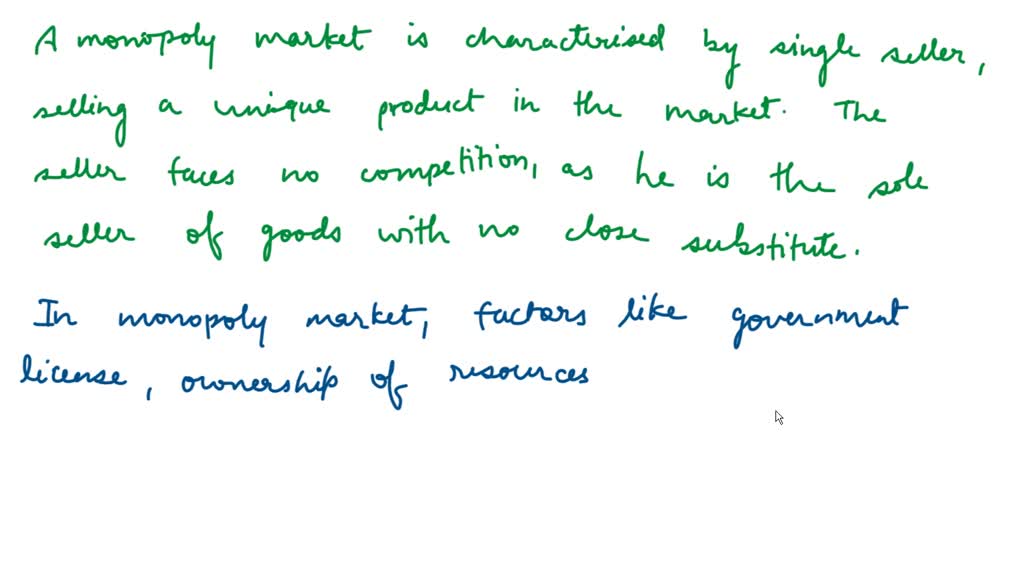 A monopoly market is characterised by single seller,
selling a unique product in the market. The
seller faces no competition, as he is the sole
seller of goods with no close substitute.
In monopoly market, factors like government
license, ownership of resources